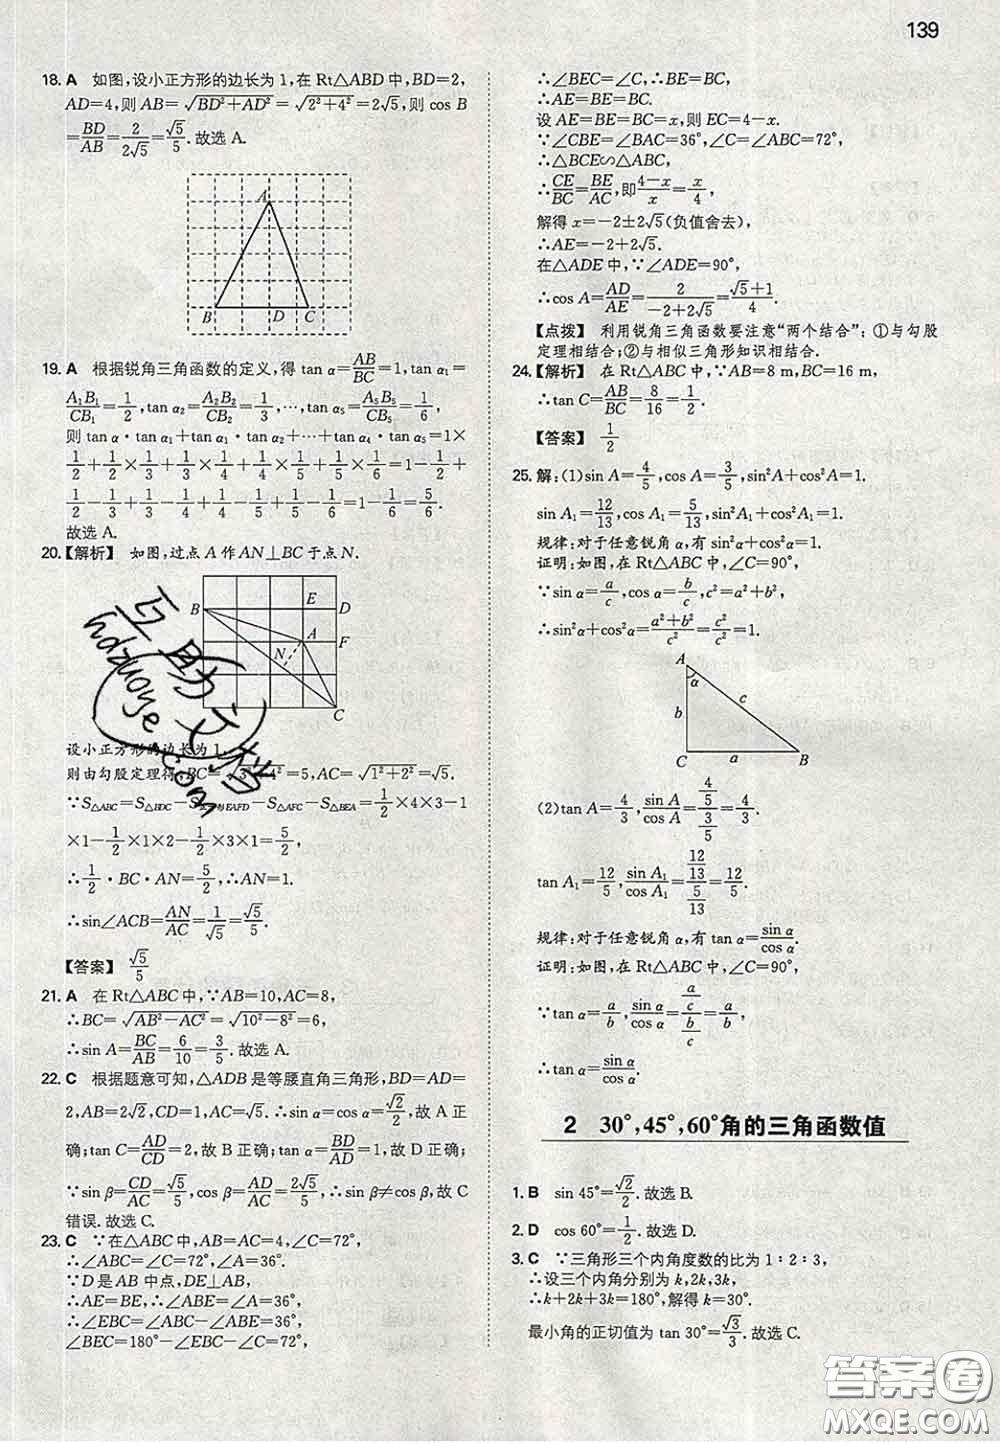 139
18. A 如图,设小正方形的边长为1,在Rt△ABD中,BD=2,
AD=4,则 AB=√(BD²+AD²)=√(2²+4²)=2√5,则 cos B
=BD/AB=2/(2√5)=√5/5.故选 A.
A
B D C
19. A 根据锐角三角函数的定义,得 tan α=AB/BC=1,tan α₁=
A₁B₁/CB₁=1/2,tan α₂=A₂B₂/CB₂=1/3,…,tan α₅=A₅B₅/CB₅=1/6,
则 tan α·tan α₁+tan α₁·tan α₂+…+tan α₄·tan α₅=1×
1/2+1/2×1/3+1/3×1/4+1/4×1/5+1/5×1/6=1-1/2+
1/2-1/3+1/3-1/4+1/4-1/5+1/5-1/6=1-1/6=5/6.
故选 A.
20.【解析】 如图,过点 A 作 AN⊥BC 于点 N.
E
B D
A F
N
C
设小正方形的边长为 1,
则由勾股定理得,BC=√(3²+4²)=5,AC=√(1²+2²)=√5.
∵S△ABC=S△BDC-S正方形EAFD-S△AFC-S△BEA=1/2×4×3-1
×1-1/2×1×2-1/2×3×1=5/2,
∴1/2·BC·AN=5/2,∴AN=1.
∴sin∠ACB=AN/AC=1/√5=√5/5.
【答案】 √5/5
21. A 在 Rt△ABC 中,∵AB=10,AC=8,
∴BC=√(AB²-AC²)=√(10²-8²)=6,
∴sin A=BC/AB=6/10=3/5.故选 A.
22. C 根据题意可知,△ADB 是等腰直角三角形,BD=AD=
2,AB=2√2,CD=1,AC=√5.∴sin α=cos α=√2/2,故 A 正
确;tan C=AD/CD=2,故 B 正确;tan α=BD/AD=1,故 D 正确;
∵sin β=CD/AC=√5/5,cos β=AD/AC=2√5/5,∴sin β≠cos β,故 C
错误.故选 C.
23. C ∵在△ABC 中,AB=AC=4,∠C=72°,
∴∠ABC=∠C=72°,∠A=36°.
∵D 是 AB 中点,DE⊥AB,
∴AE=BE,∴∠ABE=∠A=36°,
∴∠EBC=∠ABC-∠ABE=36°,
∠BEC=180°-∠EBC-∠C=72°,
∴∠BEC=∠C,∴BE=BC,
∴AE=BE=BC.
设 AE=BE=BC=x,则 EC=4-x.
∵∠CBE=∠BAC=36°,∠C=∠ABC=72°,
∴△BCE∽△ABC,
∴CE/BC=BE/AC,即(4-x)/x=x/4,
解得 x=-2±2√5(负值舍去),
∴AE=-2+2√5.
在△ADE 中,∵∠ADE=90°,
∴cos A=AD/AE=2/(-2+2√5)=(√5+1)/4.
【点拨】 利用锐角三角函数要注意“两个结合”:①与勾股
定理相结合;②与相似三角形知识相结合.
24.【解析】 在 Rt△ABC 中,∵AB=8 m,BC=16 m,
∴tan C=AB/BC=8/16=1/2.
【答案】 1/2
25. 解:(1)sin A=4/5,cos A=3/5,sin²A+cos²A=1.
sin A₁=12/13,cos A₁=5/13,sin²A₁+cos²A₁=1.
规律:对于任意锐角 α,有 sin²α+cos²α=1.
证明:如图,在 Rt△ABC 中,∠C=90°,
∵sin α=a/c,cos α=b/c,c²=a²+b²,
∴sin²α+cos²α=(a²+b²)/c²=c²/c²=1.
A
α
b c
C a B
(2)tan A=4/3,sin A/cos A=(4/5)/(3/5)=4/3.
tan A₁=12/5,sin A₁/cos A₁=(12/13)/(5/13)=12/5.
规律:对于任意锐角 α,有 tan α=sin α/cos α.
证明:如图,在 Rt△ABC 中,∠C=90°,
∵tan α=a/b,sin α/cos α=(a/c)/(b/c)=a/b,
∴tan α=sin α/cos α.
2 30°,45°,60°角的三角函数值
1. B sin 45°=√2/2.故选 B.
2. D cos 60°=1/2.故选 D.
3. C ∵三角形三个内角度数的比为 1∶2∶3,
∴设三个内角分别为 k,2k,3k,
∴k+2k+3k=180°,解得 k=30°.
最小角的正切值为 tan 30°=√3/3.故选 C.
互助文档
hdzuoye.com
答案圈
MXQE.COM